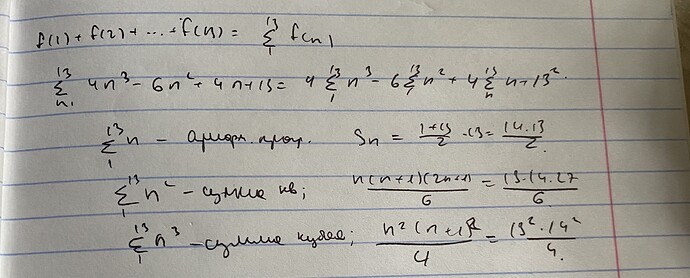 f(1) + f(2) + ... + f(13) = ∑₁¹³ f(n)
∑ₙ₁¹³ 4n³ - 6n² + 4n + 13 = 4 ∑₁¹³ n³ - 6 ∑₁¹³ n² + 4 ∑ₙ¹³ n + 13².
∑₁¹³ n - арифм. прогр. Sn = (1+13)/2 · 13 = (14·13)/2.
∑₁¹³ n² - сумма кв; n(n+1)(2n+1)/6 = (13·14·27)/6.
∑₁¹³ n³ - сумма кубов; n²(n+1)²/4 = (13²·14²)/4.